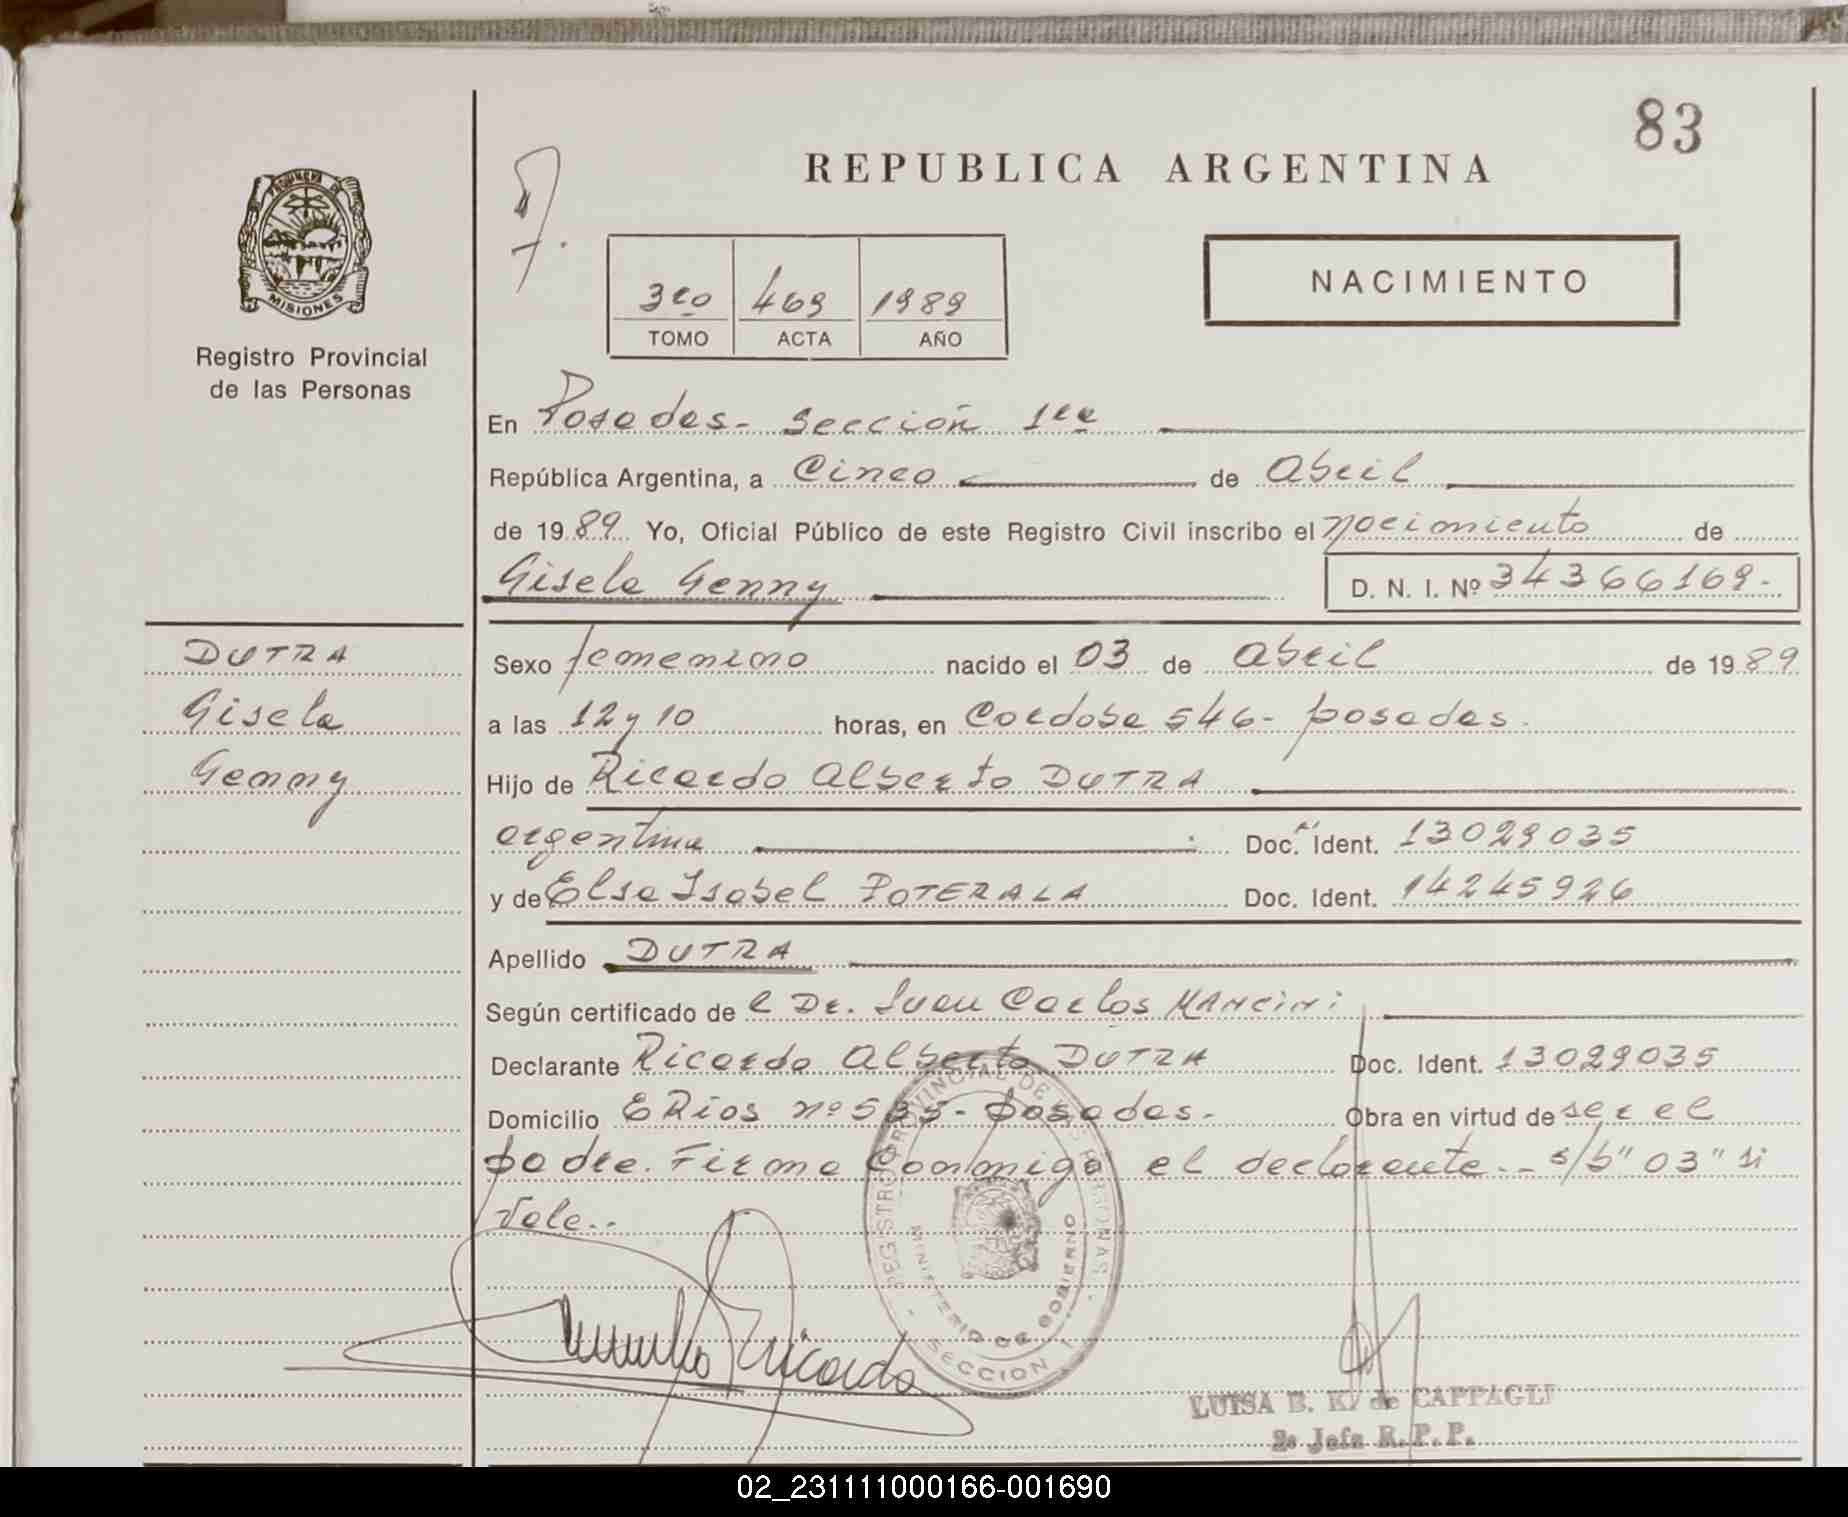 83
REPUBLICA ARGENTINA
PROVINCIA DE
MISIONES
Registro Provincial
de las Personas
3ro 469 1989
TOMO ACTA AÑO
NACIMIENTO
En Posadas - Sección 1ra
República Argentina, a Cinco de Abril
de 1989 Yo, Oficial Público de este Registro Civil inscribo el nacimiento de
Gisela Genny D. N. I. Nº 34366169.-
DUTRA
Gisela
Genny
Sexo femenino nacido el 03 de Abril de 1989
a las 12 y 10 horas, en Cordoba 546 - posadas.
Hijo de Ricardo Alberto DUTRA
argentina Doc. Ident. 13029035
y de Elsa Isabel POTERALA Doc. Ident. 14245926
Apellido DUTRA
Según certificado de l Dr. Juan Carlos MANCINI
Declarante Ricardo Alberto DUTRA Doc. Ident. 13029035
Domicilio E Rios nº 535 - posadas.- Obra en virtud de ser el
padre. Firma Conmigo el declarante.- s/b "03" si
Vale.-
REGISTRO PROVINCIAL DE LAS PERSONAS
MINISTERIO DE GOBIERNO
SECCION 1
Ricardo
LUISA E. K. de CAPPAGLI
2a Jefa R.P.P.
02_231111000166-001690